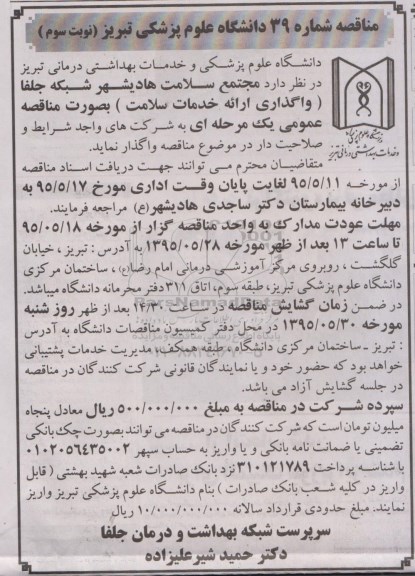 مناقصه شماره ۳۹ دانشگاه علوم پزشکی تبریز (نوبت سوم)
دانشگاه علوم پزشکی و خدمات بهداشتی درمانی تبریز
در نظر دارد مجتمع سلامت هادیشهر شبکه جلفا
( واگذاری ارائه خدمات سلامت ) بصورت مناقصه
عمومی یک مرحله ای به شرکت های واجد شرایط و
صلاحیت دار در موضوع مناقصه واگذار نماید.
متقاضیان محترم می توانند جهت دریافت اسناد مناقصه
از مورخه ۹۵/۵/۱۱ لغایت پایان وقت اداری مورخ ۹۵/۵/۱۷ به
دبیرخانه بیمارستان دکتر ساجدی هادیشهر(ع) مراجعه فرمایند.
مهلت عودت مدارک به واحد مناقصه گزار از مورخه ۹۵/۰۵/۱۸
تا ساعت ۱۳ بعد از ظهر مورخه ۱۳۹۵/۰۵/۲۸ به آدرس : تبریز ، خیابان
گلگشت ، روبروی مرکز آموزشی درمانی امام رضا(ع) ، ساختمان مرکزی
دانشگاه علوم پزشکی تبریز، طبقه سوم، اتاق ۳۱۱ دفتر محرمانه دانشگاه میباشد.
در ضمن زمان گشایش مناقصه در ساعت ۱۲/۳۰ بعد از ظهر روز شنبه
مورخه ۱۳۹۵/۰۵/۳۰ در محل دفتر کمیسیون مناقصات دانشگاه به آدرس
: تبریز ـ ساختمان مرکزی دانشگاه ، طبقه همکف، مدیریت خدمات پشتیبانی
خواهد بود که حضور خود و یا نمایندگان قانونی شرکت کنندگان در مناقصه
در جلسه گشایش آزاد می باشد.
سپرده شرکت در مناقصه به مبلغ ۵۰۰/۰۰۰/۰۰۰ ریال معادل پنجاه
میلیون تومان است که شرکت کنندگان در مناقصه می توانند بصورت چک بانکی
تضمینی یا ضمانت نامه بانکی و یا واریز به حساب سپهر ۰۱۰۲۰۵۶۴۳۵۰۰۲
با شناسه پرداخت ۳۱۰۱۲۱۷۸۹ نزد بانک صادرات شعبه شهید بهشتی ( قابل
واریز در کلیه شعب بانک صادرات ) بنام دانشگاه علوم پزشکی تبریز واریز
نمایند. مبلغ حدودی قرارداد سالانه ۱۰/۰۰۰/۰۰۰/۰۰۰ ریال
سرپرست شبکه بهداشت و درمان جلفا
دکتر حمید شیرعلیزاده